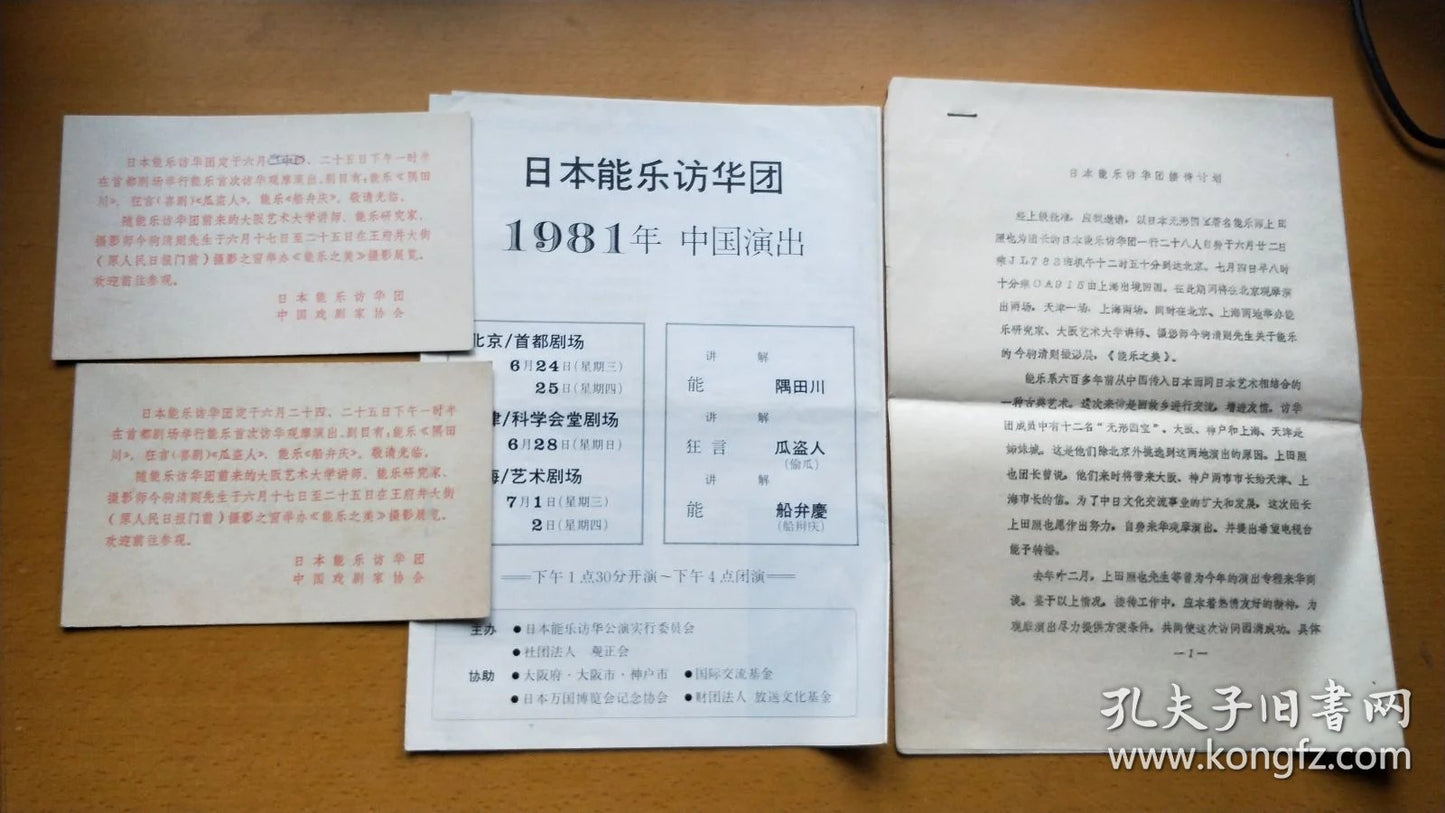 日本能乐访华团定于六月
、二十五日下午一时半
在首都剧场举行能乐首次访华观摩演出。剧目有：能乐《隅田
川》，狂言（喜剧）《瓜盗人》，能乐《船弁庆》。敬请光临。
随能乐访华团前来的大阪艺术大学讲师、能乐研究家、
摄影师今驹清则先生于六月十七日至二十五日在王府井大街
（原人民日报门前）摄影之窗举办《能乐之美》摄影展览。
欢迎前往参观。
日本能乐访华团
中国戏剧家协会
日本能乐访华团定于六月二十四、二十五日下午一时半
在首都剧场举行能乐首次访华观摩演出。剧目有：能乐《隅田
川》，狂言（喜剧）《瓜盗人》，能乐《船弁庆》。敬请光临。
随能乐访华团前来的大阪艺术大学讲师、能乐研究家、
摄影师今驹清则先生于六月十七日至二十五日在王府井大街
（原人民日报门前）摄影之窗举办《能乐之美》摄影展览。
欢迎前往参观。
日本能乐访华团
中国戏剧家协会
日本能乐访华团
1981年 中国演出
北京/首都剧场
6月24日(星期三)
25日(星期四)
津/科学会堂剧场
6月28日(星期日)
海/艺术剧场
7月1日(星期三)
2日(星期四)
讲 解
能 隅田川
讲 解
狂言 瓜盗人
(偷瓜)
讲 解
能 船弁慶
(船辩庆)
下午1点30分开演～下午4点闭演
主办 ●日本能乐访华公演实行委员会
●社团法人 观正会
协助 ●大阪府·大阪市·神户市 ●国际交流基金
●日本万国博览会记念协会 ●财团法人 放送文化基金
日本能乐访华团接待计划
经上级批准，应我邀请，以日本无形国宝著名能乐师上田
照也为团长的日本能乐访华团一行二十八人自费于六月廿二日
乘JL783班机午十二时五十分到达北京。七月四日早八时
十分乘CA915由上海出境回国。在此期间将在北京观摩演
出两场，天津一场，上海两场。同时在北京、上海两地举办能
乐研究家、大阪艺术大学讲师、摄影师今驹清则先生关于能乐
的今驹清则摄影展，《能乐之美》。
能乐系六百多年前从中国传入日本而同日本艺术相结合的
一种古典艺术。这次来访是回故乡进行交流，增进友谊。访华
团成员中有十二名“无形国宝”。大阪、神户和上海、天津是
姊妹城。这是他们除北京外挑选到这两地演出的原因。上田照
也团长曾说，他们来时将带来大阪、神户两市市长给天津、上
海市长的信。为了中日文化交流事业的扩大和发展，这次团长
上田照也愿作出努力，自费来华观摩演出。并提出希望电视台
能予转播。
去年十二月，上田照也先生等曾为今年的演出专程来华商
谈。鉴于以上情况，接待工作中，应本着热情友好的精神，为
观摩演出尽力提供方便条件，共同使这次访问圆满成功。具体
—1—
孔夫子旧书网
www.kongfz.com